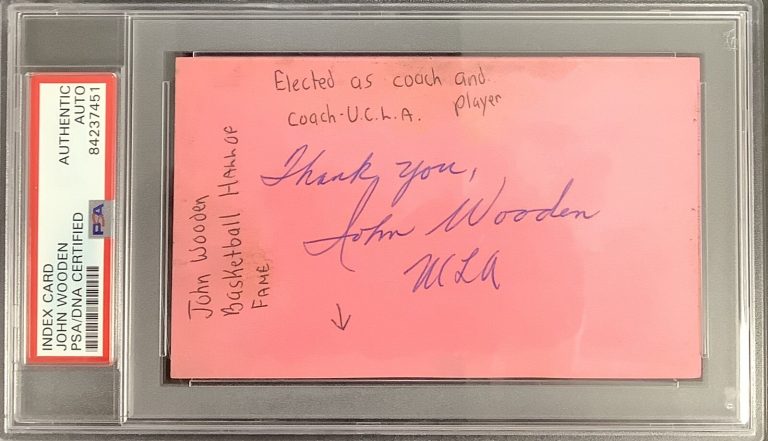 INDEX CARD
JOHN WOODEN
PSA/DNA CERTIFIED
AUTHENTIC
AUTO
84237451
PSA
Elected as coach and
player
Coach-U.C.L.A.
John Wooden
Basketball Hall of
Fame
Thank you,
John Wooden
UCLA